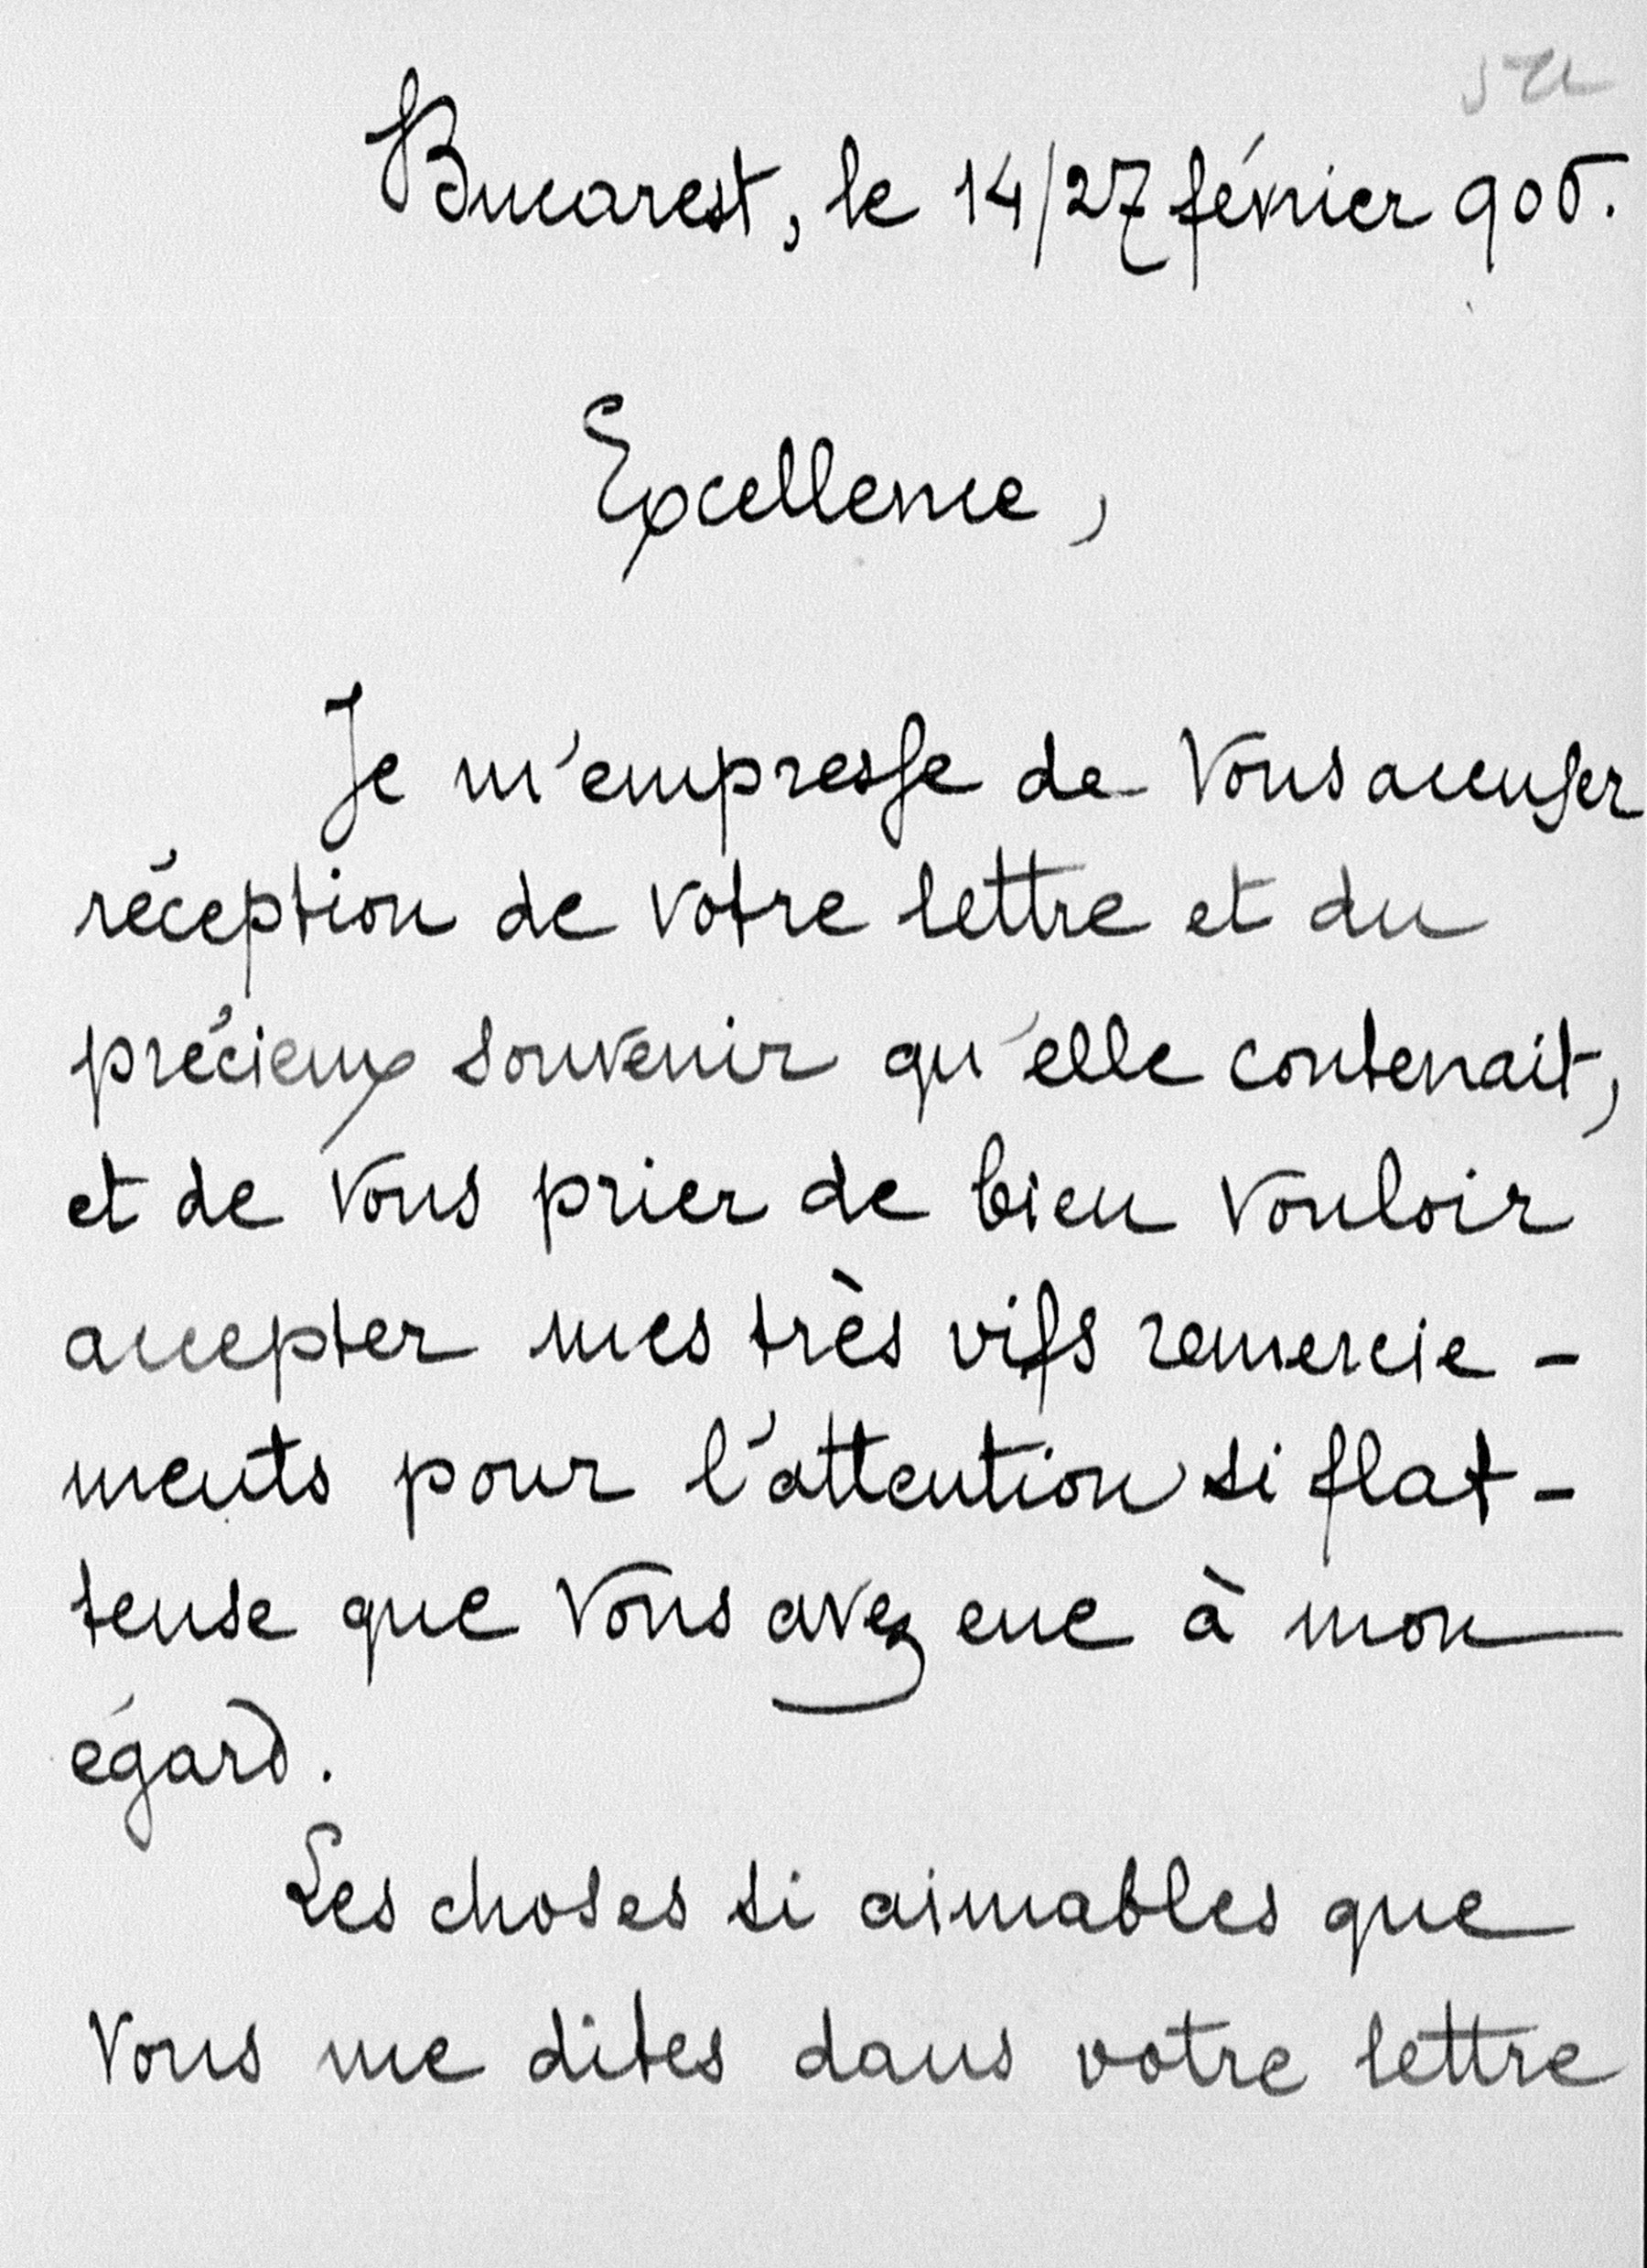 Bucarest, le 14/27 février 905.
Excellence,
Je m'empresse de Vous accuser
réception de votre lettre et du
précieux souvenir qu'elle contenait,
et de Vous prier de bien vouloir
accepter mes très vifs remercie-
ments pour l'attention si flat-
teuse que Vous avez eue à mon
égard.
Les choses si aimables que
Vous me dites dans votre lettre